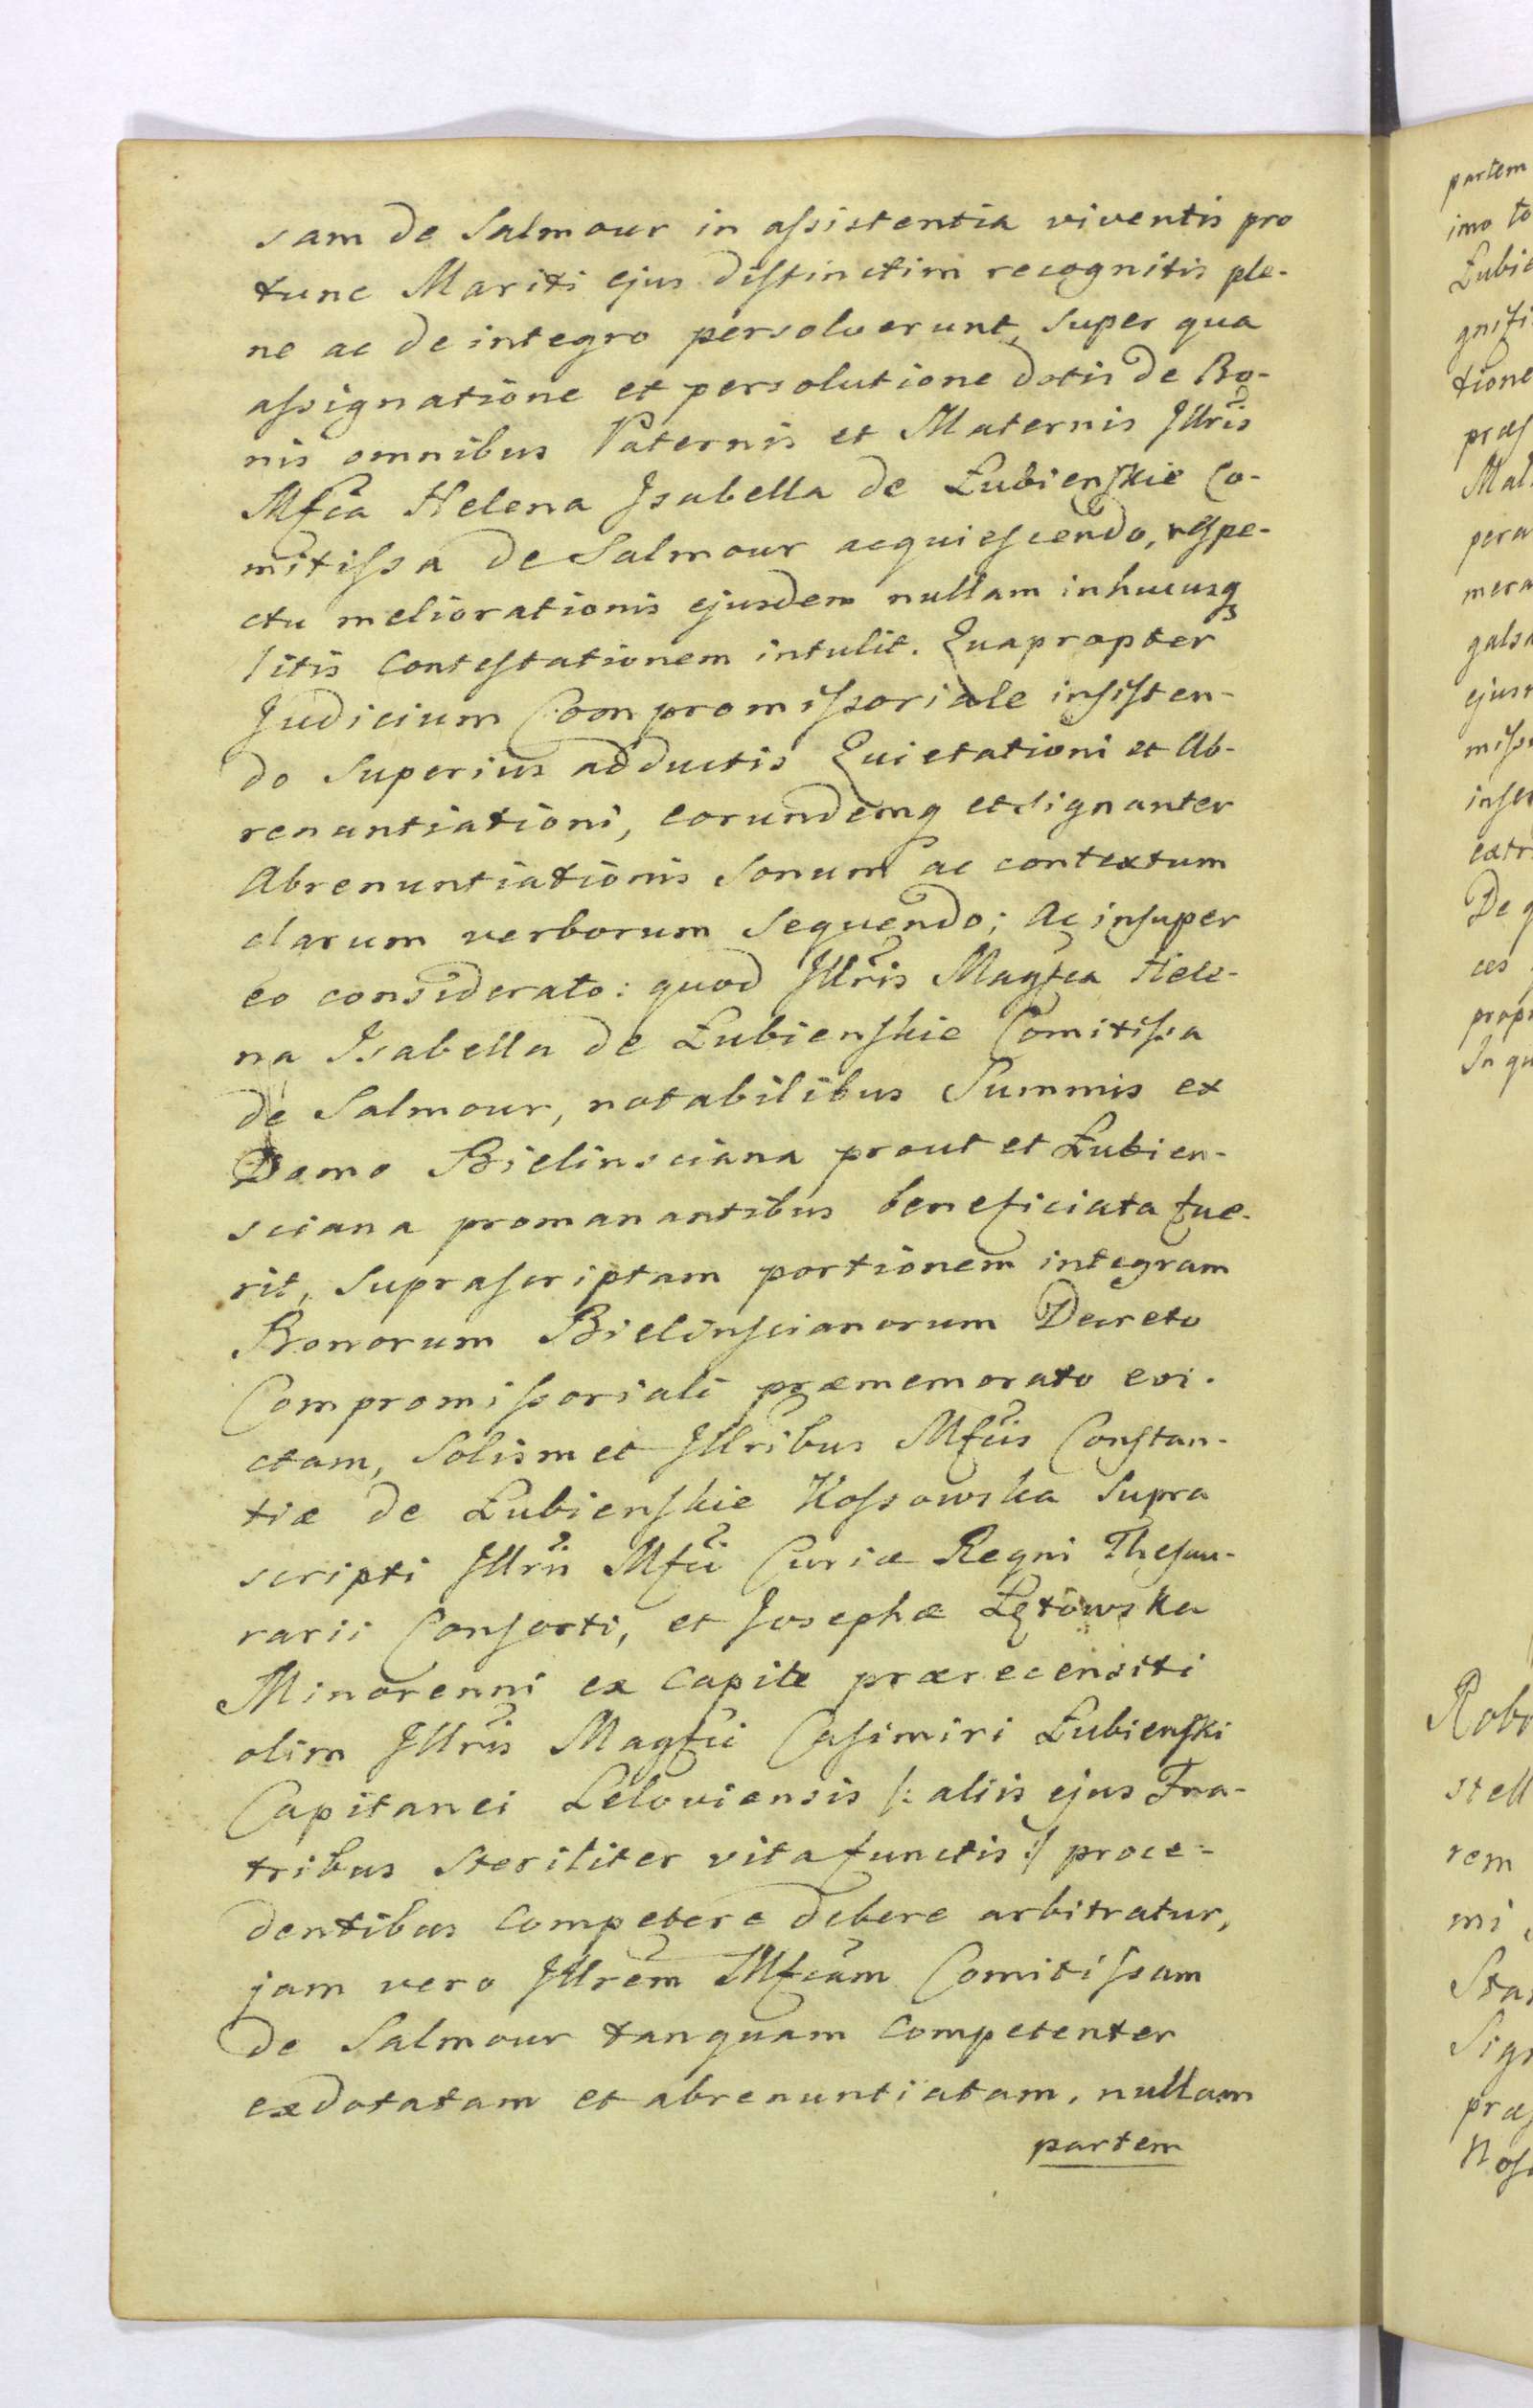 sam de Salmour in assistentia viventis pro
tunc Mariti ejus distinctim recognitis ple-
ne ac de integro persolverunt, super qua
assignatione et persolutione dotis de Bo-
nis omnibus Paternis et Maternis Jllris
Mfca Helena Jsabella de Łubienskie Co-
mitissa de Salmour acquiescendo, respe-
ctu meliorationis ejusdem nullam inhucusq
litis Contestationem intulit. Quapropter
Judicium Compromissoriale insisten-
do superius adductis Quietationi et Ab-
renuntiationi, eorundemq et signanter
Abrenuntiationis Sonum ac contextum
clarum verborum Sequendo; Ac insuper
eo considerato: quod Jllris Magfca Hele-
na Jsabella de Łubienskie Comitissa
de Salmour, notabilibus Summis ex
Domo Bielinsciana prout et Łubien-
sciana promanantibus beneficiata fue-
rit, suprascriptam portionem integram
Bonorum Bielinscianorum Decreto
Compromissoriali præmemorato evi-
ctam, Solismet Jllribus Mfcis Constan-
tiæ de Łubienskie Kossowska Supra
scripti Jllris Mfci Curiæ Regni Thesau-
rarii Consorti, et Josephæ Łętowska
Minorenni ex Capite prærecensiti
olim Jllris Magfci Casimiri Łubienski
Capitanei Leloviensis /: aliis ejus Fra-
tribus Steriliter vita functis :/ proce-
dentibus Competere debere arbitratur,
jam vero Jllrem Mfcam Comitissam
de Salmour tanquam Competenter
exdotatam et abrenuntiatam, nullam
partem
partem
imo to
Łubie
gnifi
tione
præs
Mat
pera
mera
galsa
ejus
miss
inser
extr
De q
ces
prop
In qu
Robo
stell
rem
mi
Sta
Sig
præs
Nos